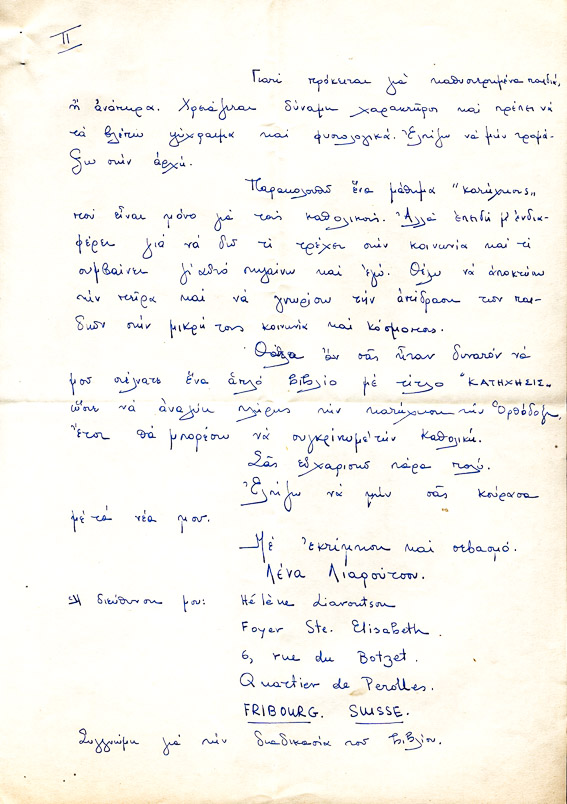 II
Γιατί πρόκειται γιά καθυστερημένα παιδιά,
ἤ ἀνάπηρα. Χρειάζεται δύναμη χαρακτῆρος καί πρέπει νά
τά βλέπω ψύχραιμα καί φυσιολογικά. Ἐλπίζω νά μήν τρομά-
ξω στήν ἀρχή.
Παρακολουθῶ ἕνα μάθημα "κατήχησις"
πού εἶναι μόνο γιά τούς καθολικούς. Ἀλλά ἐπειδή μ' ἐνδια-
φέρει γιά νά δῶ τί τρέχει στήν κοινωνία καί τί
συμβαίνει γι' αὐτό πηγαίνω καί ἐγώ. Θέλω νά ἀποκτήσω
τήν πεῖρα καί νά γνωρίσω τήν ἀπίδραση των παι-
διῶν στήν μικρή τους κοινωνία καί κόσμο τους.
Θάθελα ἄν σᾶς ἦταν δυνατόν νά
μου στέλνατε ἕνα ἁπλό βιβλίο μέ τίτλο "ΚΑΤΗΧΗΣΙΣ"
ὥστε νά ἀναλύη πλήρης τήν κατήχηση τήν Ὀρθόδοξη,
ἔτσι θά μπορέσω νά συγκρίνω μέ τήν Καθολική.
Σᾶς εὐχαριστῶ πάρα πολύ.
Ἐλπίζω νά μήν σᾶς κούρασα
μέ τά νέα μου.
Μέ ἐκτίμηση καί σεβασμό.
Λένα Λιαρούτσου.
Ἡ διεύθυνση μου: Hélène Liaroutsou
Foyer Ste. Elisabeth.
6, rue du Botzet.
Quartier de Perolles.
FRIBOURG. SUISSE.
Συγγνώμη γιά τήν διαδικασία τοῦ βιβλίου.